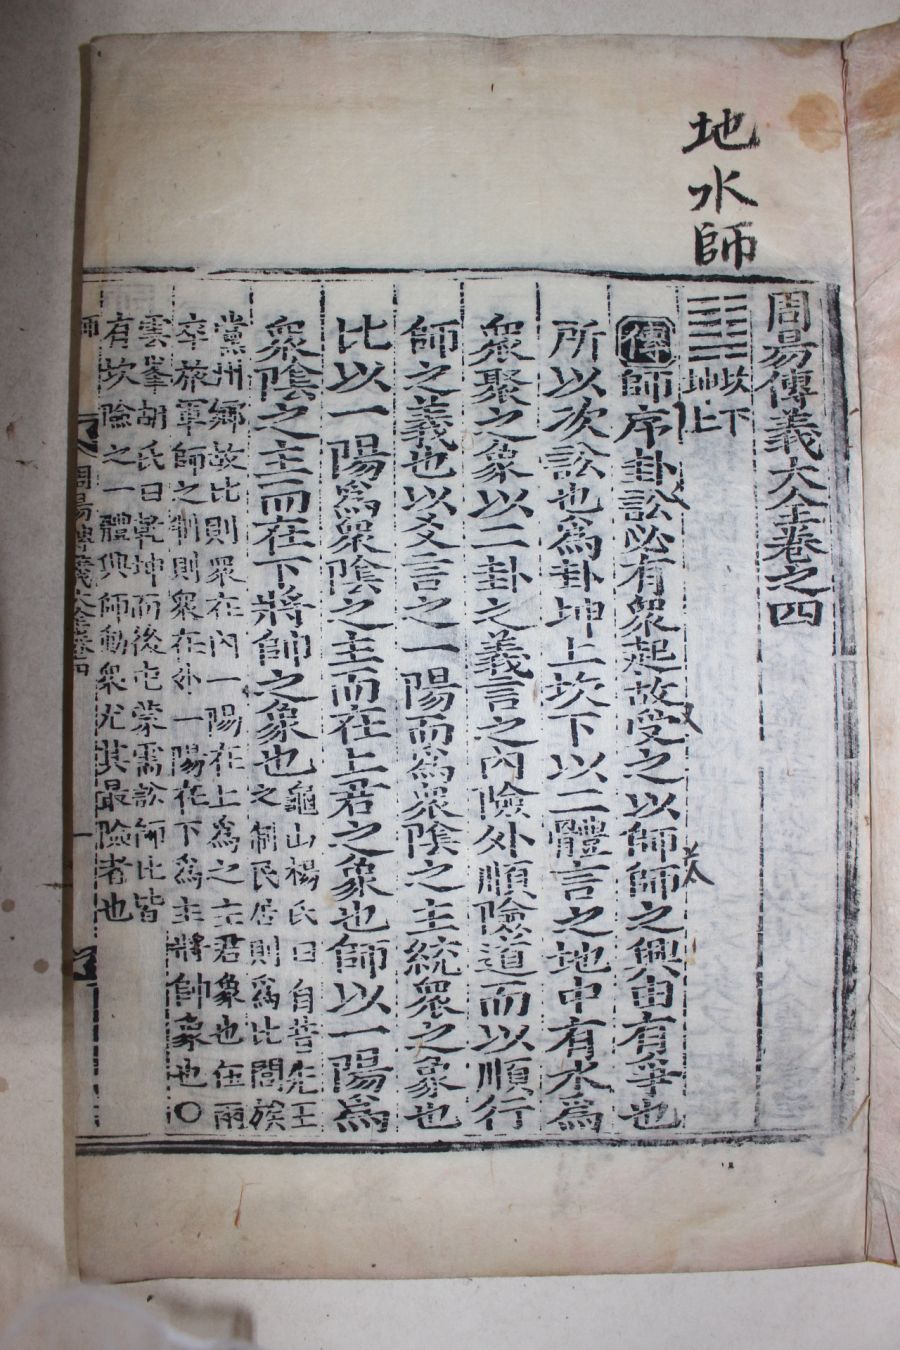 地水師
周易傳義大全卷之四
䷆ 坎下
坤上
傳師序卦訟必有衆起故受之以師師之興由有爭也
所以次訟也爲卦坤上坎下以二體言之地中有水爲
衆聚之象以二卦之義言之內險外順險道而以順行
師之義也以爻言之一陽而爲衆陰之主統衆之象也
比以一陽爲衆陰之主而在上君之象也師以一陽爲
衆陰之主而在下將帥之象也龜山楊氏曰自昔先王
之制民居則爲比閭族
黨州鄉故比則衆在內一陽在上爲之主君象也伍兩
卒旅軍師之制則衆在外一陽在下爲主將帥象也○
雲峯胡氏曰乾坤而後屯蒙需訟師比皆
有坎險之一體興師動衆尤其最險者也
師 周易傳義大全卷四 一